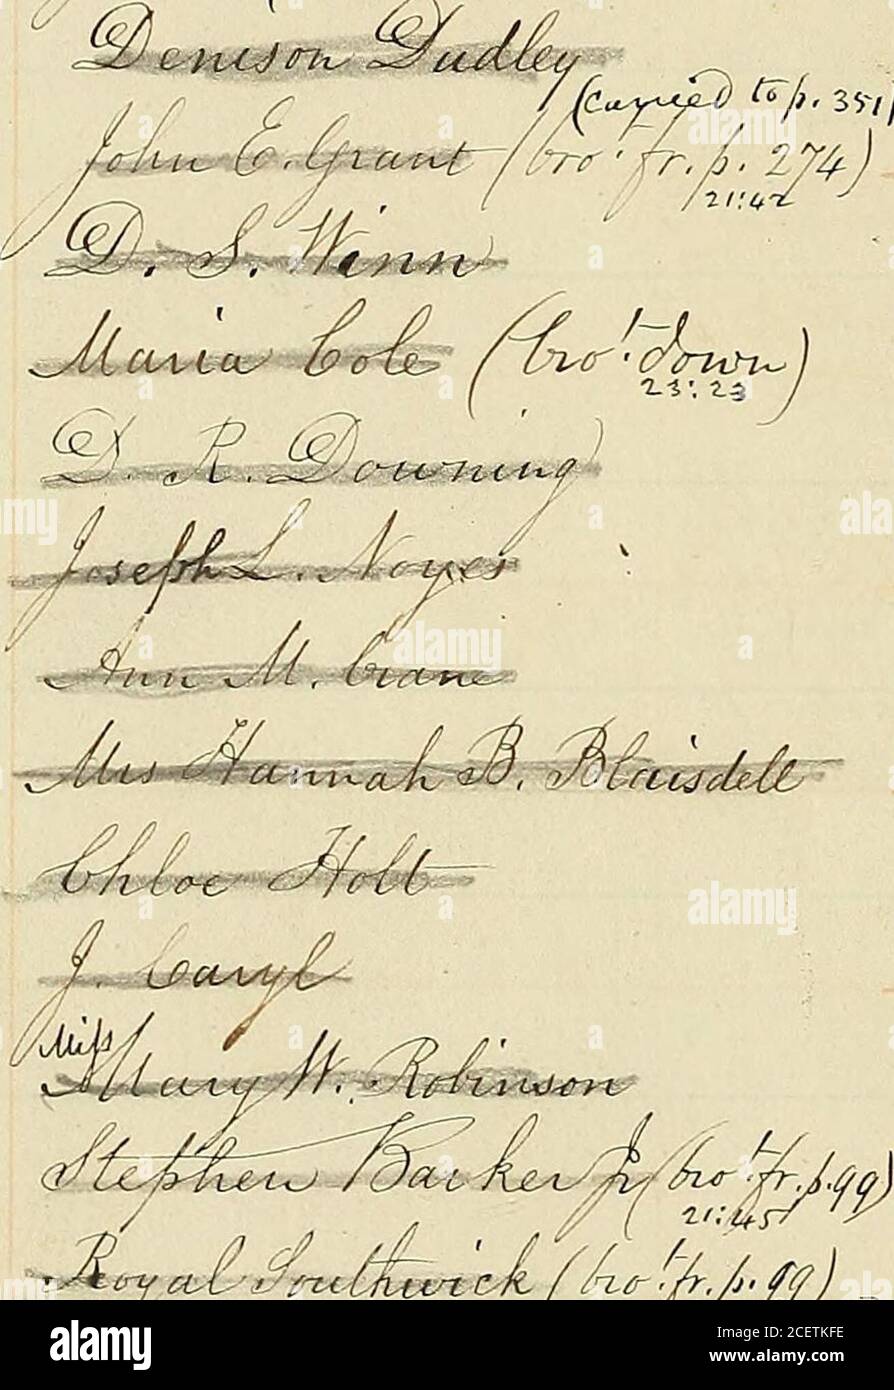 Denison Dudley
(carried to p. 351)
John E. Grant (bro't fr. p. 274)
21:42
D. S. Winn
Maria Cole (bro't down)
23:23
D. R. Downing
Joseph L. Noyes
Ann M. Crane
Mrs Hannah B. Blaisdell
Chloe Holt
J. Caryl
Miss
Mary W. Robinson
Stephen Barker Jr (bro't fr. p. 99)
21:45
Royal Southwick (bro't fr. p. 99)
alamy
Image ID: 2CETKFE
www.alamy.com